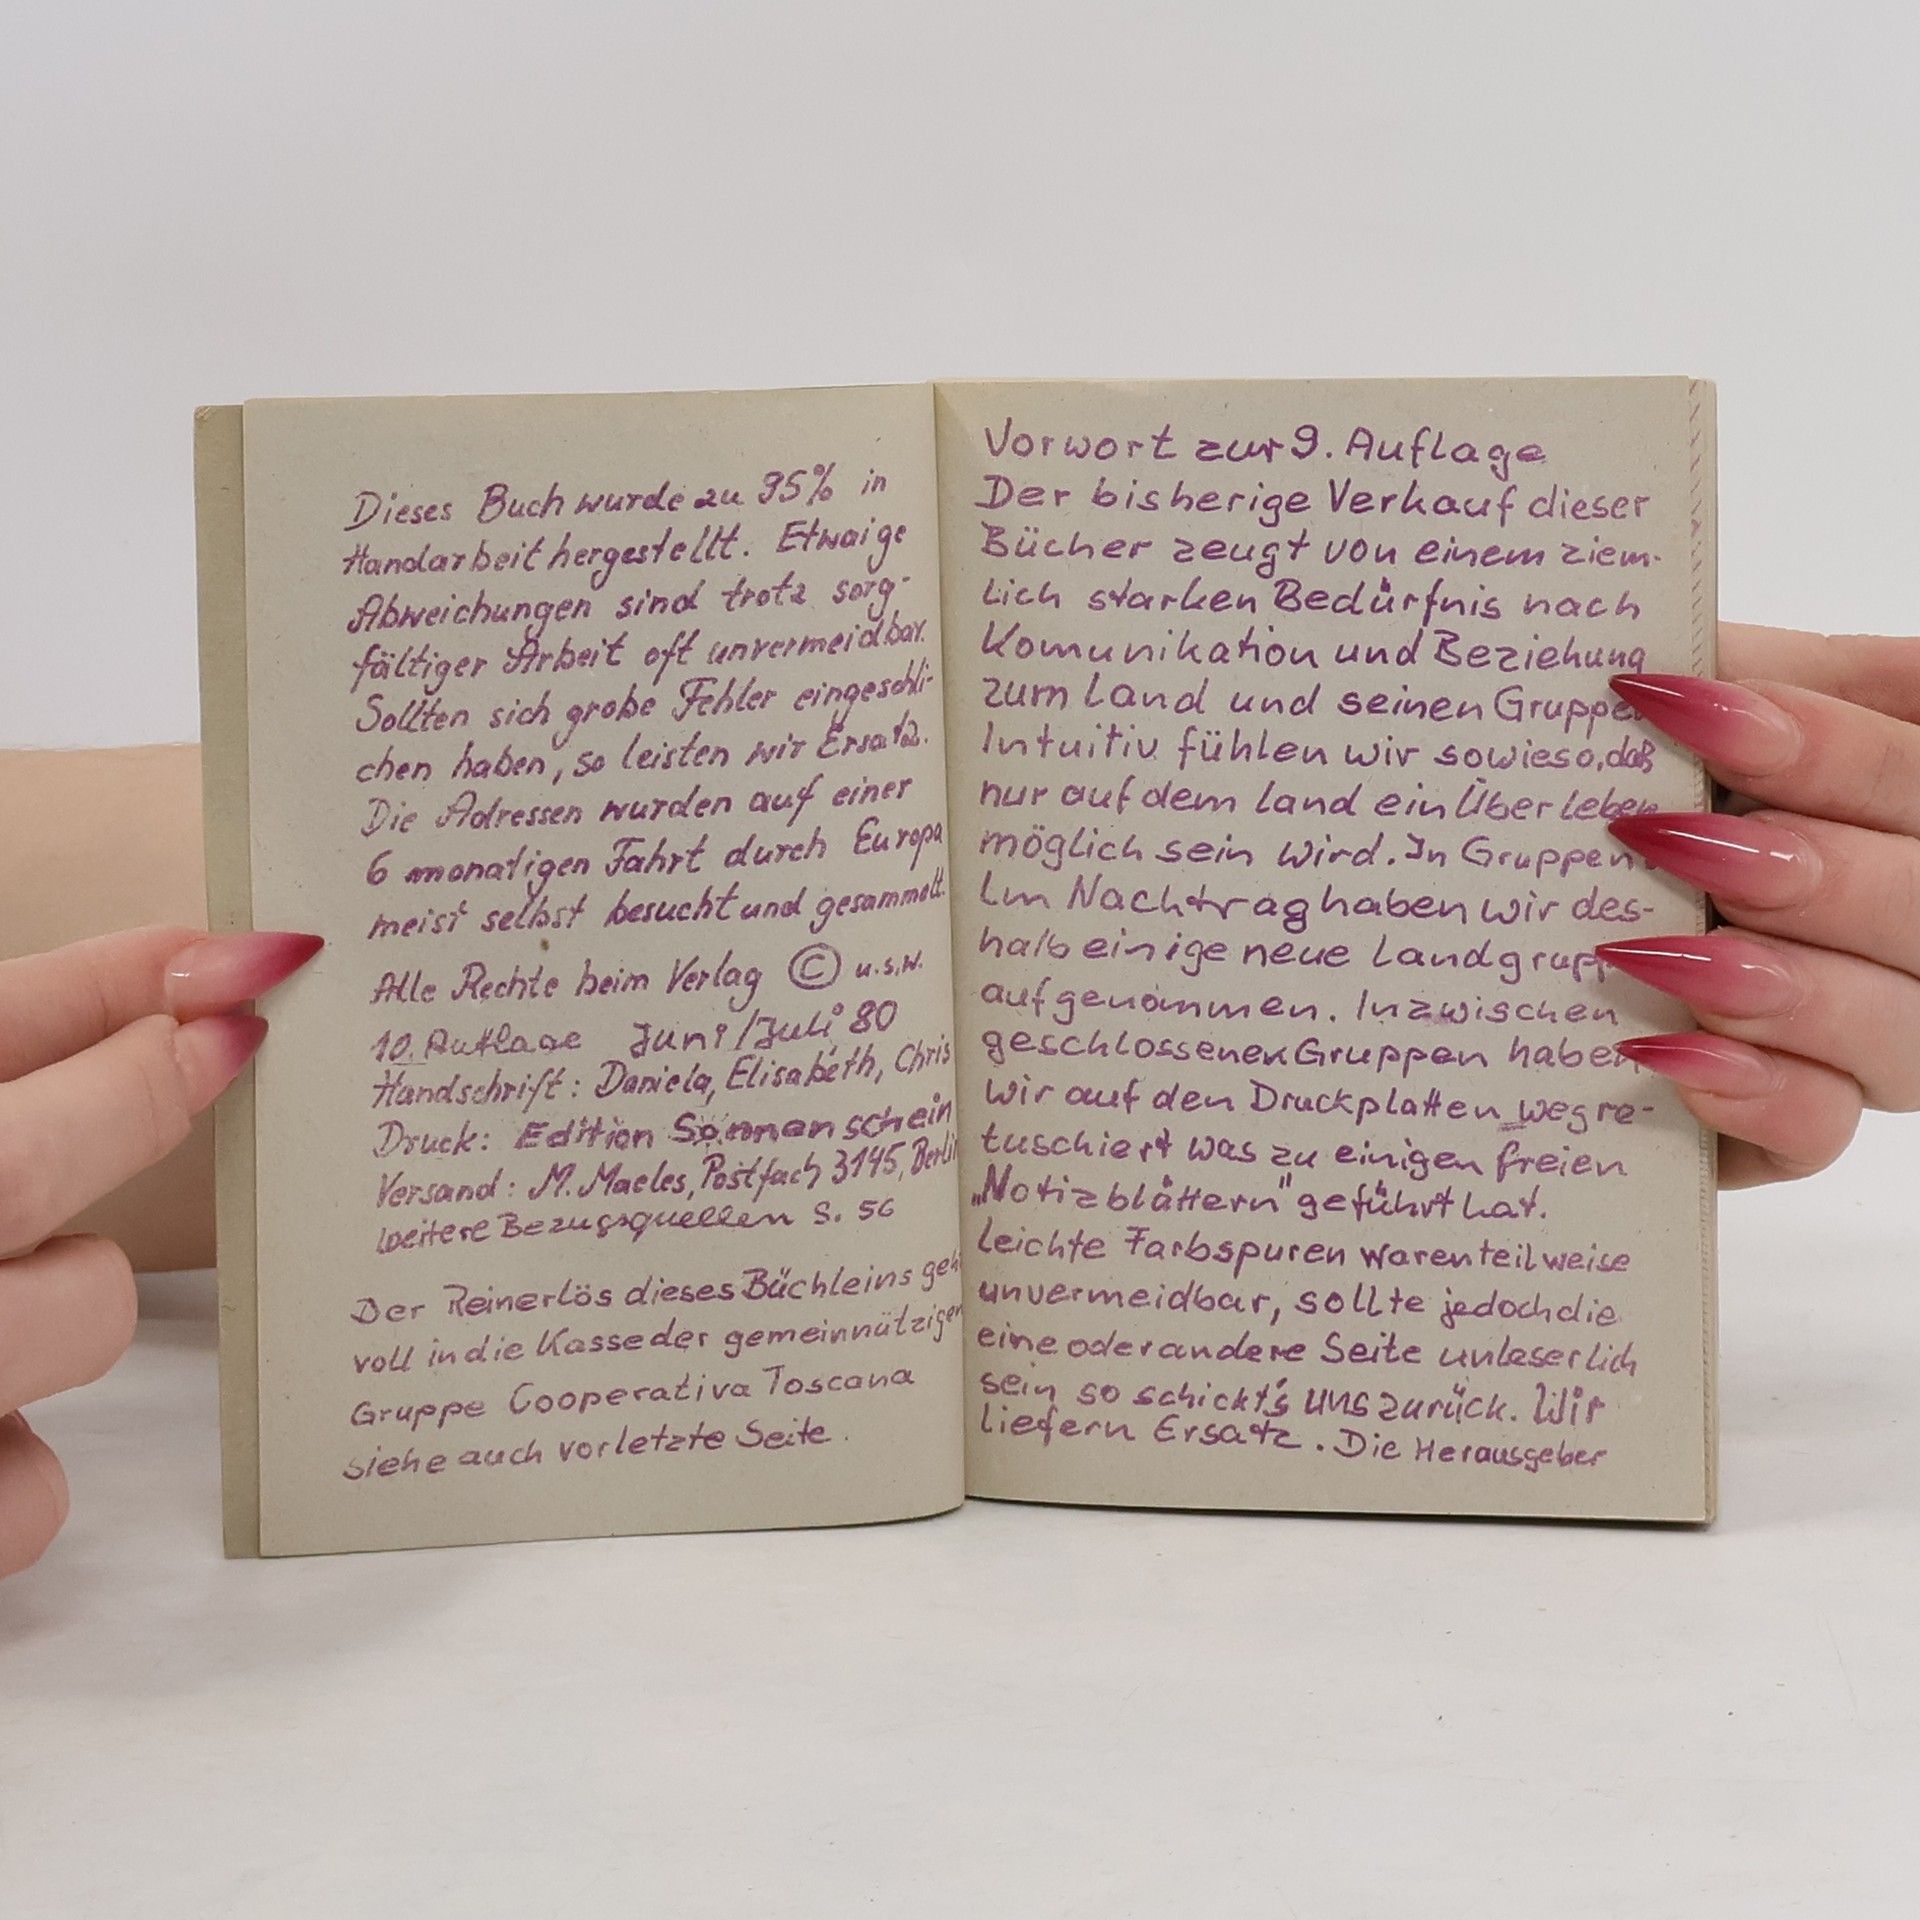 Dieses Buch wurde zu 95% in
Handarbeit hergestellt. Etwaige
Abweichungen sind trotz sorg-
fältiger Arbeit oft unvermeidbar.
Sollten sich grobe Fehler eingeschli-
chen haben, so leisten wir Ersatz.
Die Adressen wurden auf einer
6 monatigen Fahrt durch Europa
meist selbst besucht und gesammelt.
Alle Rechte beim Verlag © u.s.w.
10. Auflage Juni/Juli 80
Handschrift: Daniela, Elisabeth, Chris
Druck: Edition Sonnenschein
Versand: M. Maeles, Postfach 3145, Berlin
weitere Bezugsquellen S. 56
Der Reinerlös dieses Büchleins geht
voll in die Kasse der gemeinnützigen
Gruppe Cooperativa Toscana
siehe auch vorletzte Seite.
Vorwort zur 9. Auflage
Der bisherige Verkauf dieser
Bücher zeugt von einem ziem-
lich starken Bedürfnis nach
Komunikation und Beziehung
zum Land und seinen Gruppen
Intuitiv fühlen wir sowieso, daß
nur auf dem Land ein Überleben
möglich sein wird. In Gruppen
Im Nachtrag haben wir des-
halb einige neue Landgrupp
aufgenommen. Inzwischen
geschlossenen Gruppen haben
wir auf den Druckplatten wegre-
tuschiert was zu einigen freien
„Notizblättern" geführt hat.
Leichte Farbspuren waren teilweise
unvermeidbar, sollte jedoch die
eine oder andere Seite unleserlich
sein so schickt's uns zurück. Wir
liefern Ersatz. Die Herausgeber